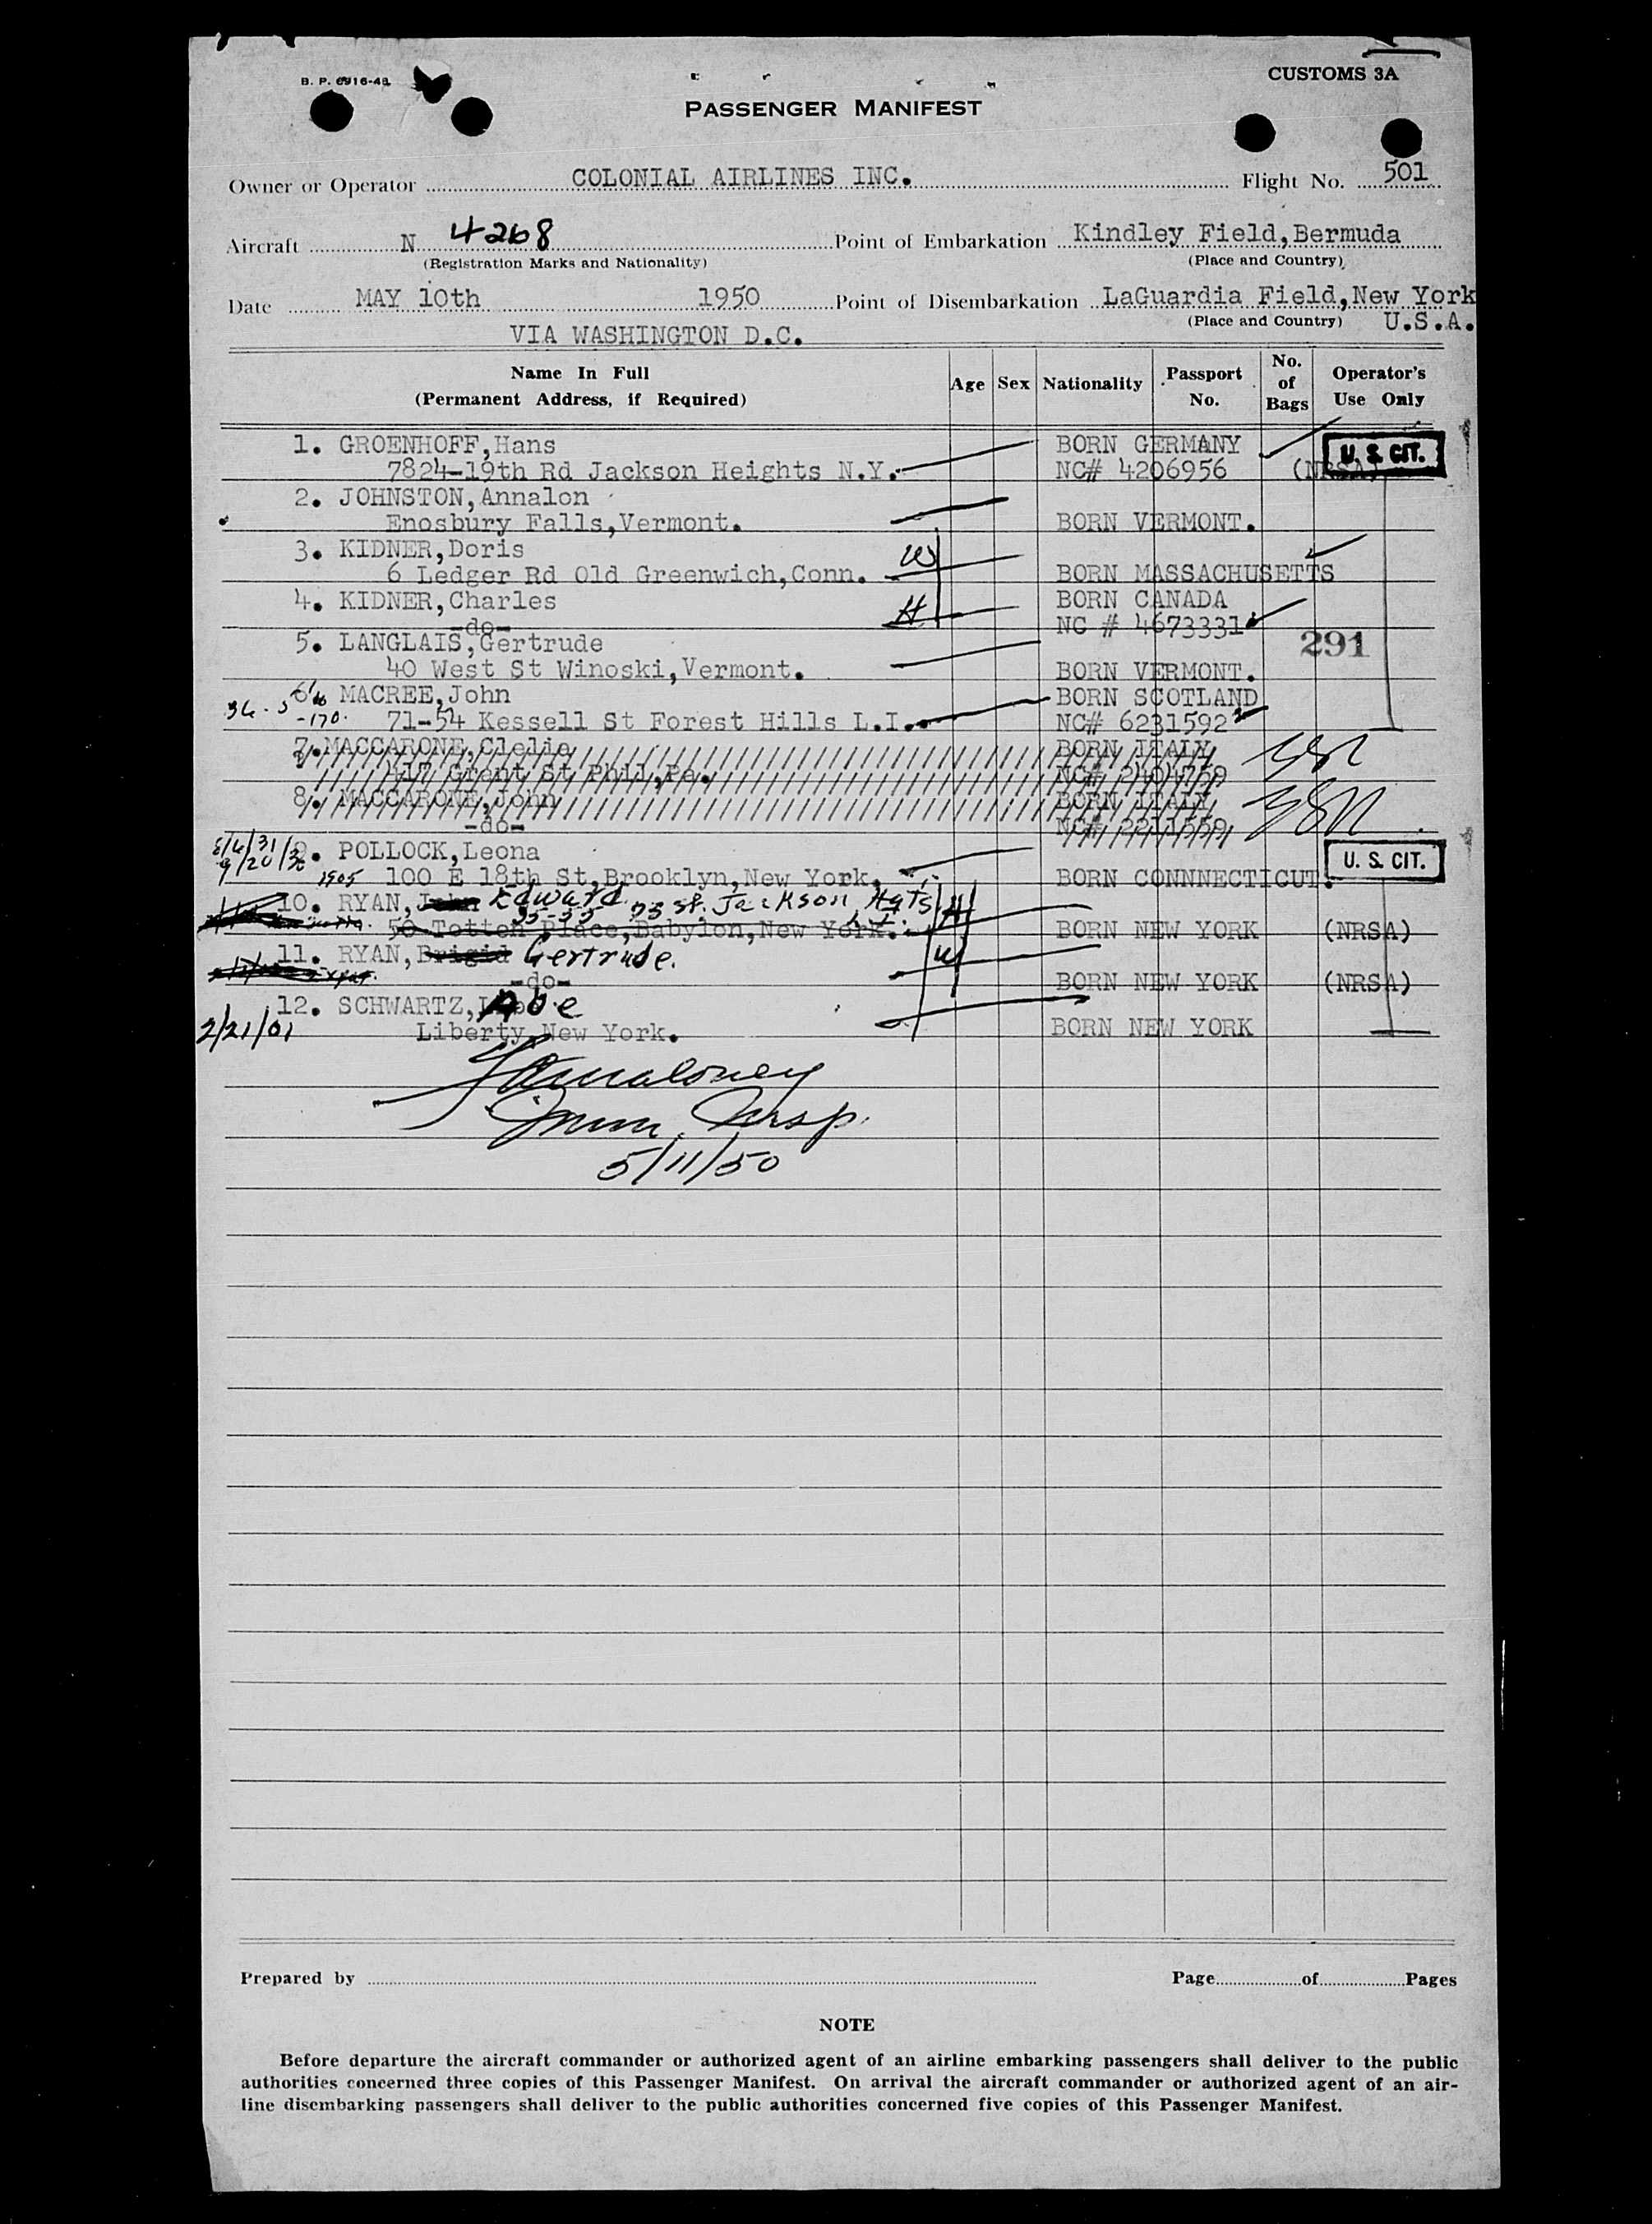 B. P. 6916-48
CUSTOMS 3A
PASSENGER MANIFEST
Owner or Operator COLONIAL AIRLINES INC. Flight No. 501
Aircraft N 4268 Point of Embarkation Kindley Field, Bermuda
(Registration Marks and Nationality) (Place and Country)
Date MAY 10th 1950 Point of Disembarkation LaGuardia Field, New York
(Place and Country) U.S.A.
VIA WASHINGTON D.C.
Name In Full (Permanent Address, if Required) Age Sex Nationality Passport No. No. of Bags Operator's Use Only
1. GROENHOFF, Hans BORN GERMANY U. S. CIT.
7824-19th Rd Jackson Heights N.Y. NC# 4206956 (NRSA)
2. JOHNSTON, Annalon
Enosbury Falls, Vermont. BORN VERMONT.
3. KIDNER, Doris W
6 Ledger Rd Old Greenwich, Conn. BORN MASSACHUSETTS
4. KIDNER, Charles H BORN CANADA
-do- NC # 4673331
5. LANGLAIS, Gertrude 291
40 West St Winoski, Vermont. BORN VERMONT.
6. MACREE, John BORN SCOTLAND
-170. 71-54 Kessell St Forest Hills L.I. NC# 6231592
7. MACCARONE, Clelia BORN ITALY
417 Grant St Phil, Pa. NC# 2404759
8. MACCARONE, John BORN ITALY
-do- NC# 2211559
8/6/31 9. POLLOCK, Leona U. S. CIT.
9/20/36 1505 100 E 18th St, Brooklyn, New York. BORN CONNNECTICUT.
10. RYAN, John Edward 35-35 75 St. Jackson Hgts H
50 Totten Place, Babylon, New York. BORN NEW YORK (NRSA)
11. RYAN, Brigid Gertrude. W
-do- BORN NEW YORK (NRSA)
12. SCHWARTZ, Abe
2/21/01 Liberty, New York. BORN NEW YORK
Maloney
Imm. Insp.
5/11/50
Prepared by Page of Pages
NOTE
Before departure the aircraft commander or authorized agent of an airline embarking passengers shall deliver to the public
authorities concerned three copies of this Passenger Manifest. On arrival the aircraft commander or authorized agent of an air-
line disembarking passengers shall deliver to the public authorities concerned five copies of this Passenger Manifest.